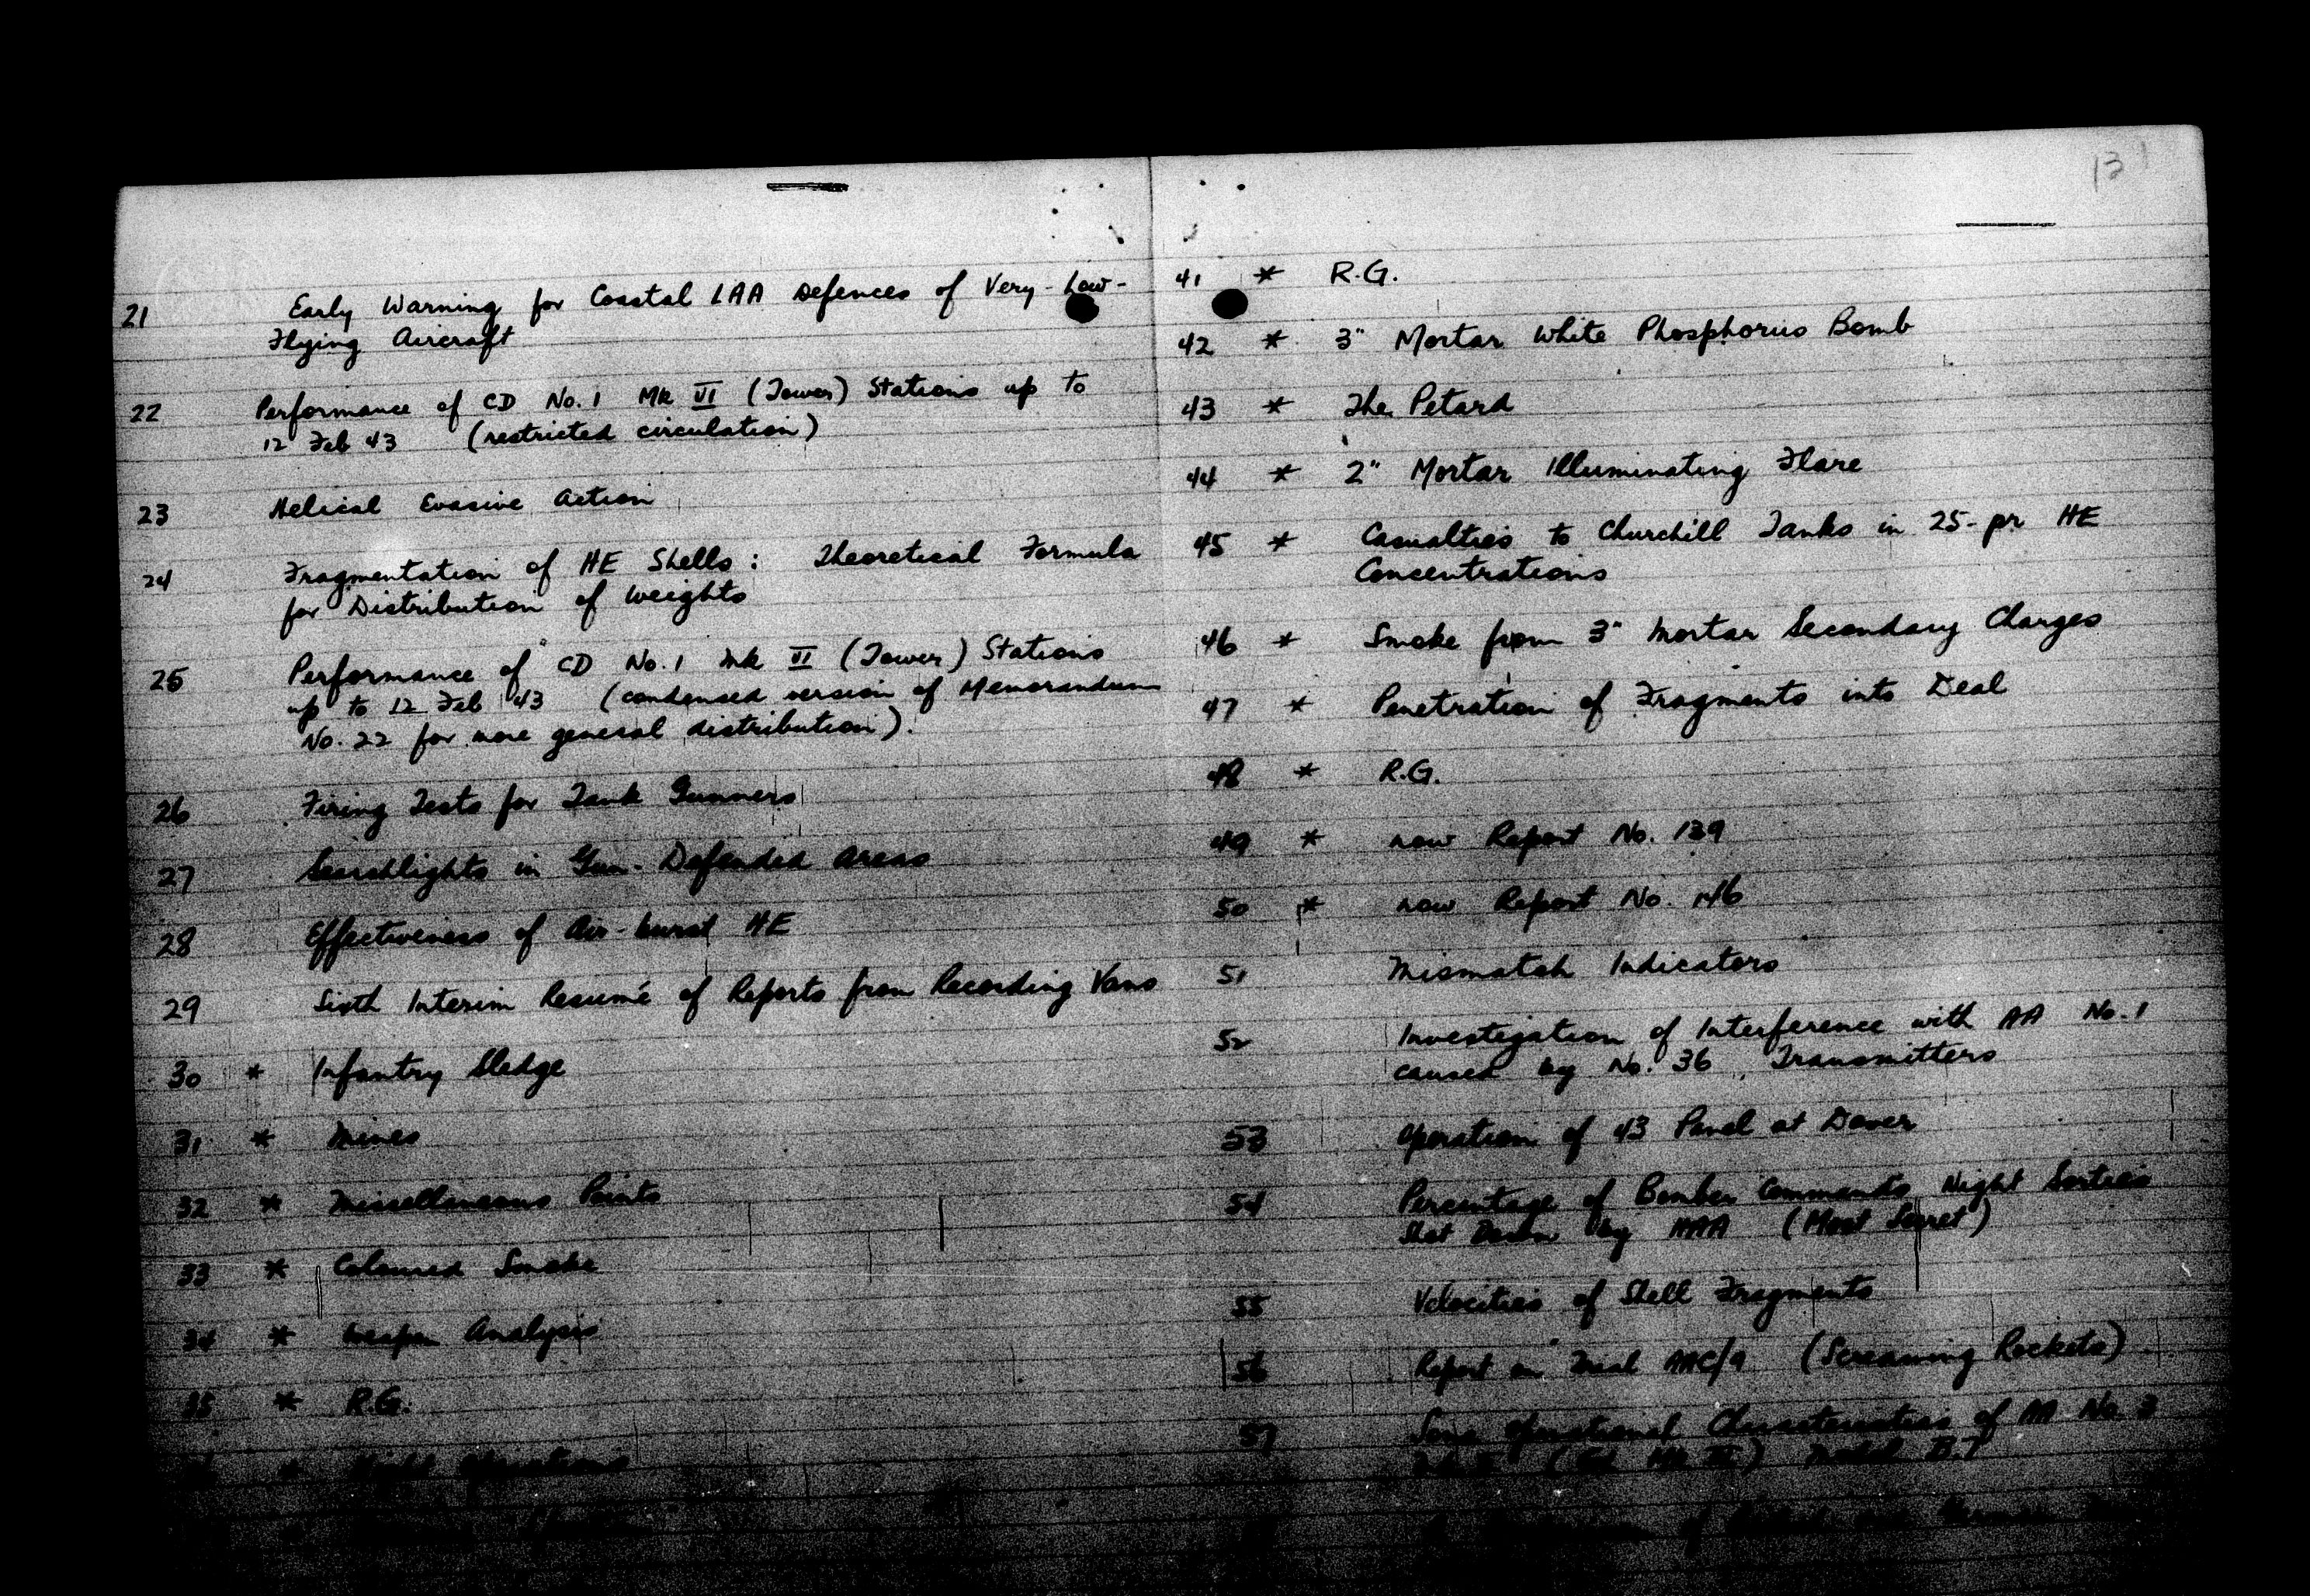 21 Early Warning for Coastal LAA Defences of Very-Low-
Flying Aircraft
22 Performance of CD No. 1 Mk VI (Tower) Stations up to
12 Feb 43 (restricted circulation)
23 Helical Evasive Action
24 Fragmentation of HE Shells: Theoretical Formula
for Distribution of Weights
25 Performance of CD No. 1 Mk VI (Tower) Stations
up to 12 Feb 43 (condensed version of Memorandum
No. 22 for more general distribution).
26 Firing Tests for Tank Gunners
27 Searchlights in Gun-Defended Areas
28 Effectiveness of Air-burst HE
29 Sixth Interim Resumé of Reports from Recording Vans
30 * Infantry Sledge
31 * Mines
32 * Miscellaneous Points
33 * Coloured Smoke
34 * Weapon Analysis
35 * R.G.
* Night Operations
131
41 * R.G.
42 * 3" Mortar White Phosphorus Bomb
43 * The Petard
44 * 2" Mortar Illuminating Flare
45 * Casualties to Churchill Tanks in 25-pr HE
Concentrations
46 * Smoke from 3" Mortar Secondary Charges
47 * Penetration of Fragments into Deal
48 * R.G.
49 * now Report No. 139
50 * now Report No. 146
51 Mismatch Indicators
52 Investigation of Interference with AA No. 1
caused by No. 36 Transmitters
53 Operation of 43 Panel at Dover
54 Percentage of Bomber Commands Night Sorties
Shot Down by AAA (Most Secret)
55 Velocities of Shell Fragments
56 Report on Trial AAC/9 (Screaming Rockets)
57 Some Operational Characteristics of AA No. 3
Model B.T
of and German